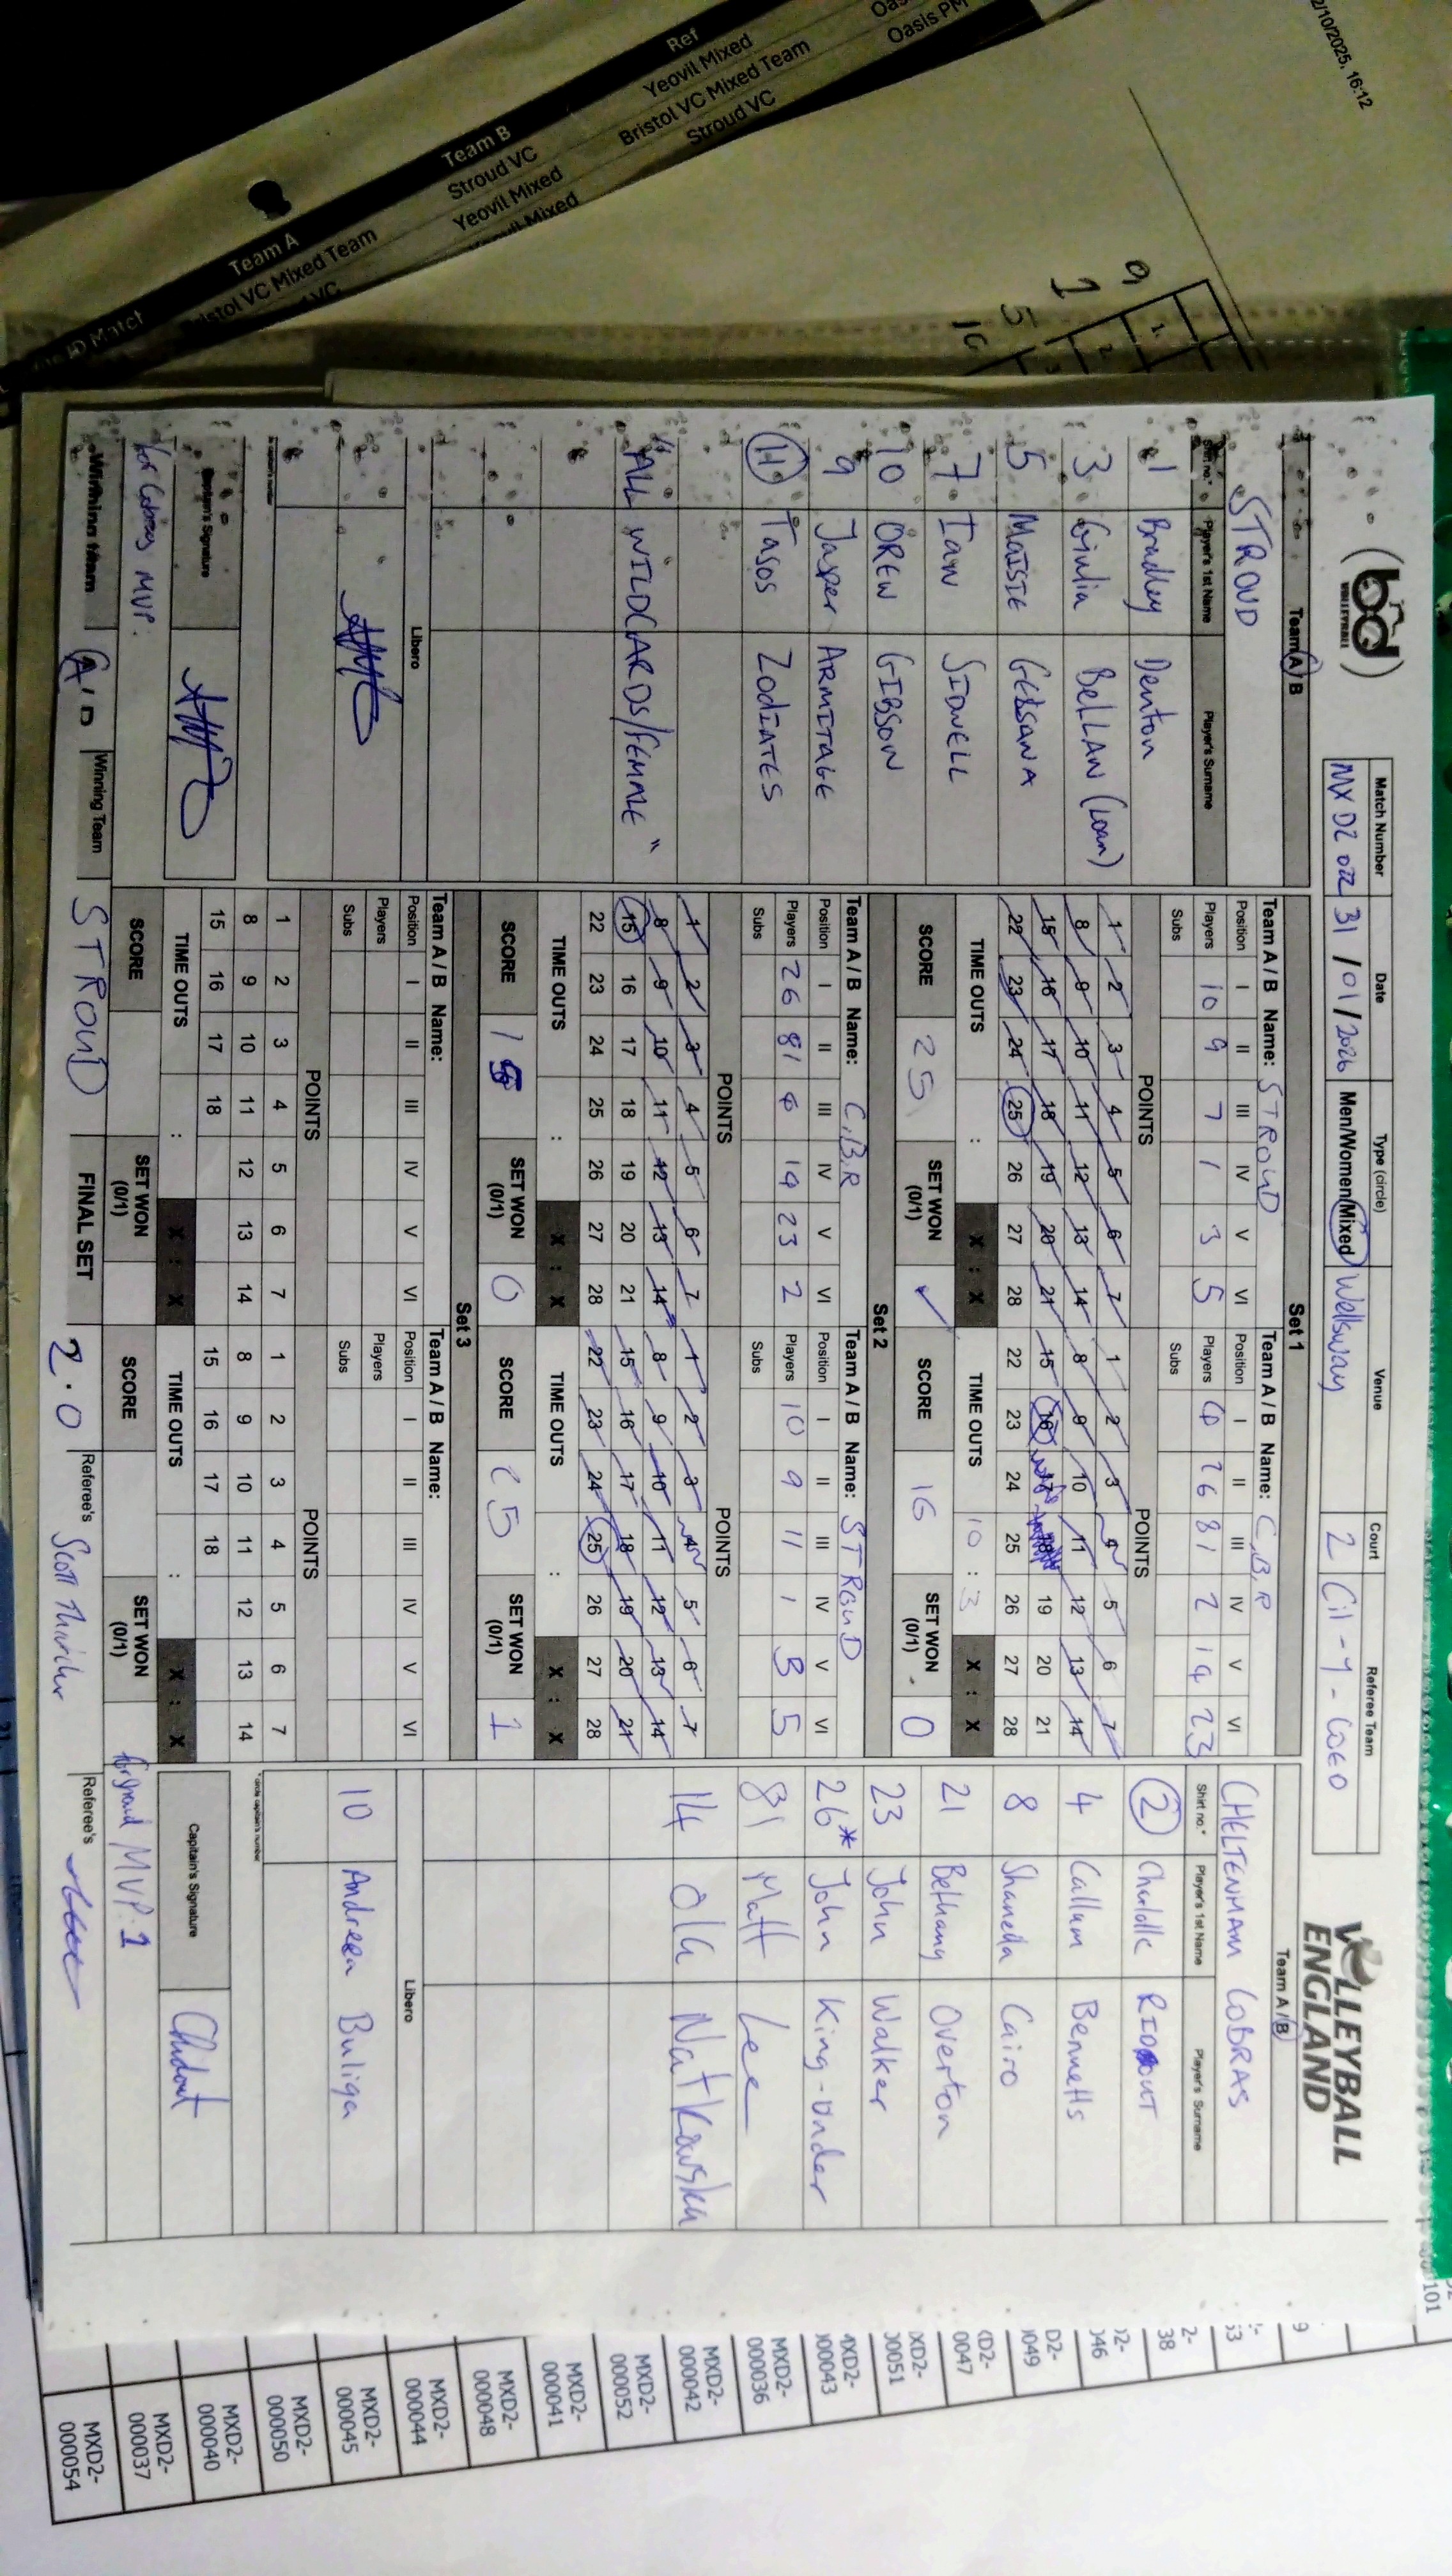 2/10/2025, 16:12
Ref
Yeovil Mixed
Bristol VC Mixed Team
Stroud VC
Oasis PM
Team B
Stroud VC
Yeovil Mixed
Team A
Bristol VC Mixed Team
Match
bd
VOLLEYBALL
VOLLEYBALL
ENGLAND
Match Number Date Type (circle) Venue Court Referee Team
31/01/2026 Men/Women/Mixed Wellsway 2
Team A / B
STROUD
Shirt no.* Player's 1st Name Player's Surname
1 Bradley Denton
3 Giulia BELLAN (Loan)
5 MAISIE
7 IAN SIDWELL
10 DREW GIBSON
9 Jasper ARMITAGE
11 Tasos ZODIATES
"ALL WILDCARDS/FEMALE"
Libero
Captain's Signature
for Cobras MVP.
Set 1
Team A / B Name: STROUD
Position I II III IV V VI
Players 10 9 7 1 3 5
Subs
POINTS
1 2 3 4 5 6 7
8 9 10 11 12 13 14
15 16 17 18 19 20 21
22 23 24 25 26 27 28
TIME OUTS : X : X
SCORE 25 SET WON (0/1) ✓
Team A / B Name: C.B.R
Position I II III IV V VI
Players 4 26 81 2 14 23
Subs
POINTS
1 2 3 4 5 6 7
8 9 10 11 12 13 14
15 16 17 18 19 20 21
22 23 24 25 26 27 28
TIME OUTS 10 : 3 X : X
SCORE 16 SET WON (0/1) 0
Set 2
Team A / B Name: C.B.R
Position I II III IV V VI
Players 26 81 14 23 2
Subs
POINTS
1 2 3 4 5 6 7
8 9 10 11 12 13 14
15 16 17 18 19 20 21
22 23 24 25 26 27 28
TIME OUTS : X : X
SCORE 15 SET WON (0/1) 0
Team A / B Name: STROUD
Position I II III IV V VI
Players 10 9 11 1 3 5
Subs
POINTS
1 2 3 4 5 6 7
8 9 10 11 12 13 14
15 16 17 18 19 20 21
22 23 24 25 26 27 28
TIME OUTS : X : X
SCORE 25 SET WON (0/1) 1
Set 3
Team A / B Name:
Position I II III IV V VI
Players
Subs
POINTS
1 2 3 4 5 6 7
8 9 10 11 12 13 14
15 16 17 18
TIME OUTS : X : X
SCORE SET WON (0/1)
Team A / B Name:
Position I II III IV V VI
Players
Subs
POINTS
1 2 3 4 5 6 7
8 9 10 11 12 13 14
15 16 17 18
TIME OUTS : X : X
SCORE SET WON (0/1)
Team A / B
CHELTENHAM COBRAS
Shirt no.* Player's 1st Name Player's Surname
2 RIDOUT
4 Callum Bennetts
8 Shanella Cairo
21 Bethany Overton
23 John Walker
26* John King-Under
81 Matt Lee
14 Ola Natkowska
Libero
10 Andreea Buliga
* circle captain's number
Captain's Signature
MVP. 1
Winning team A / B Winning Team STROUD FINAL SET 2.0 Referee's Scott Referee's
MXD2-000043
MXD2-000036
MXD2-000042
MXD2-000052
MXD2-000041
MXD2-000048
MXD2-000044
MXD2-000045
MXD2-000050
MXD2-000040
MXD2-000037
MXD2-000054